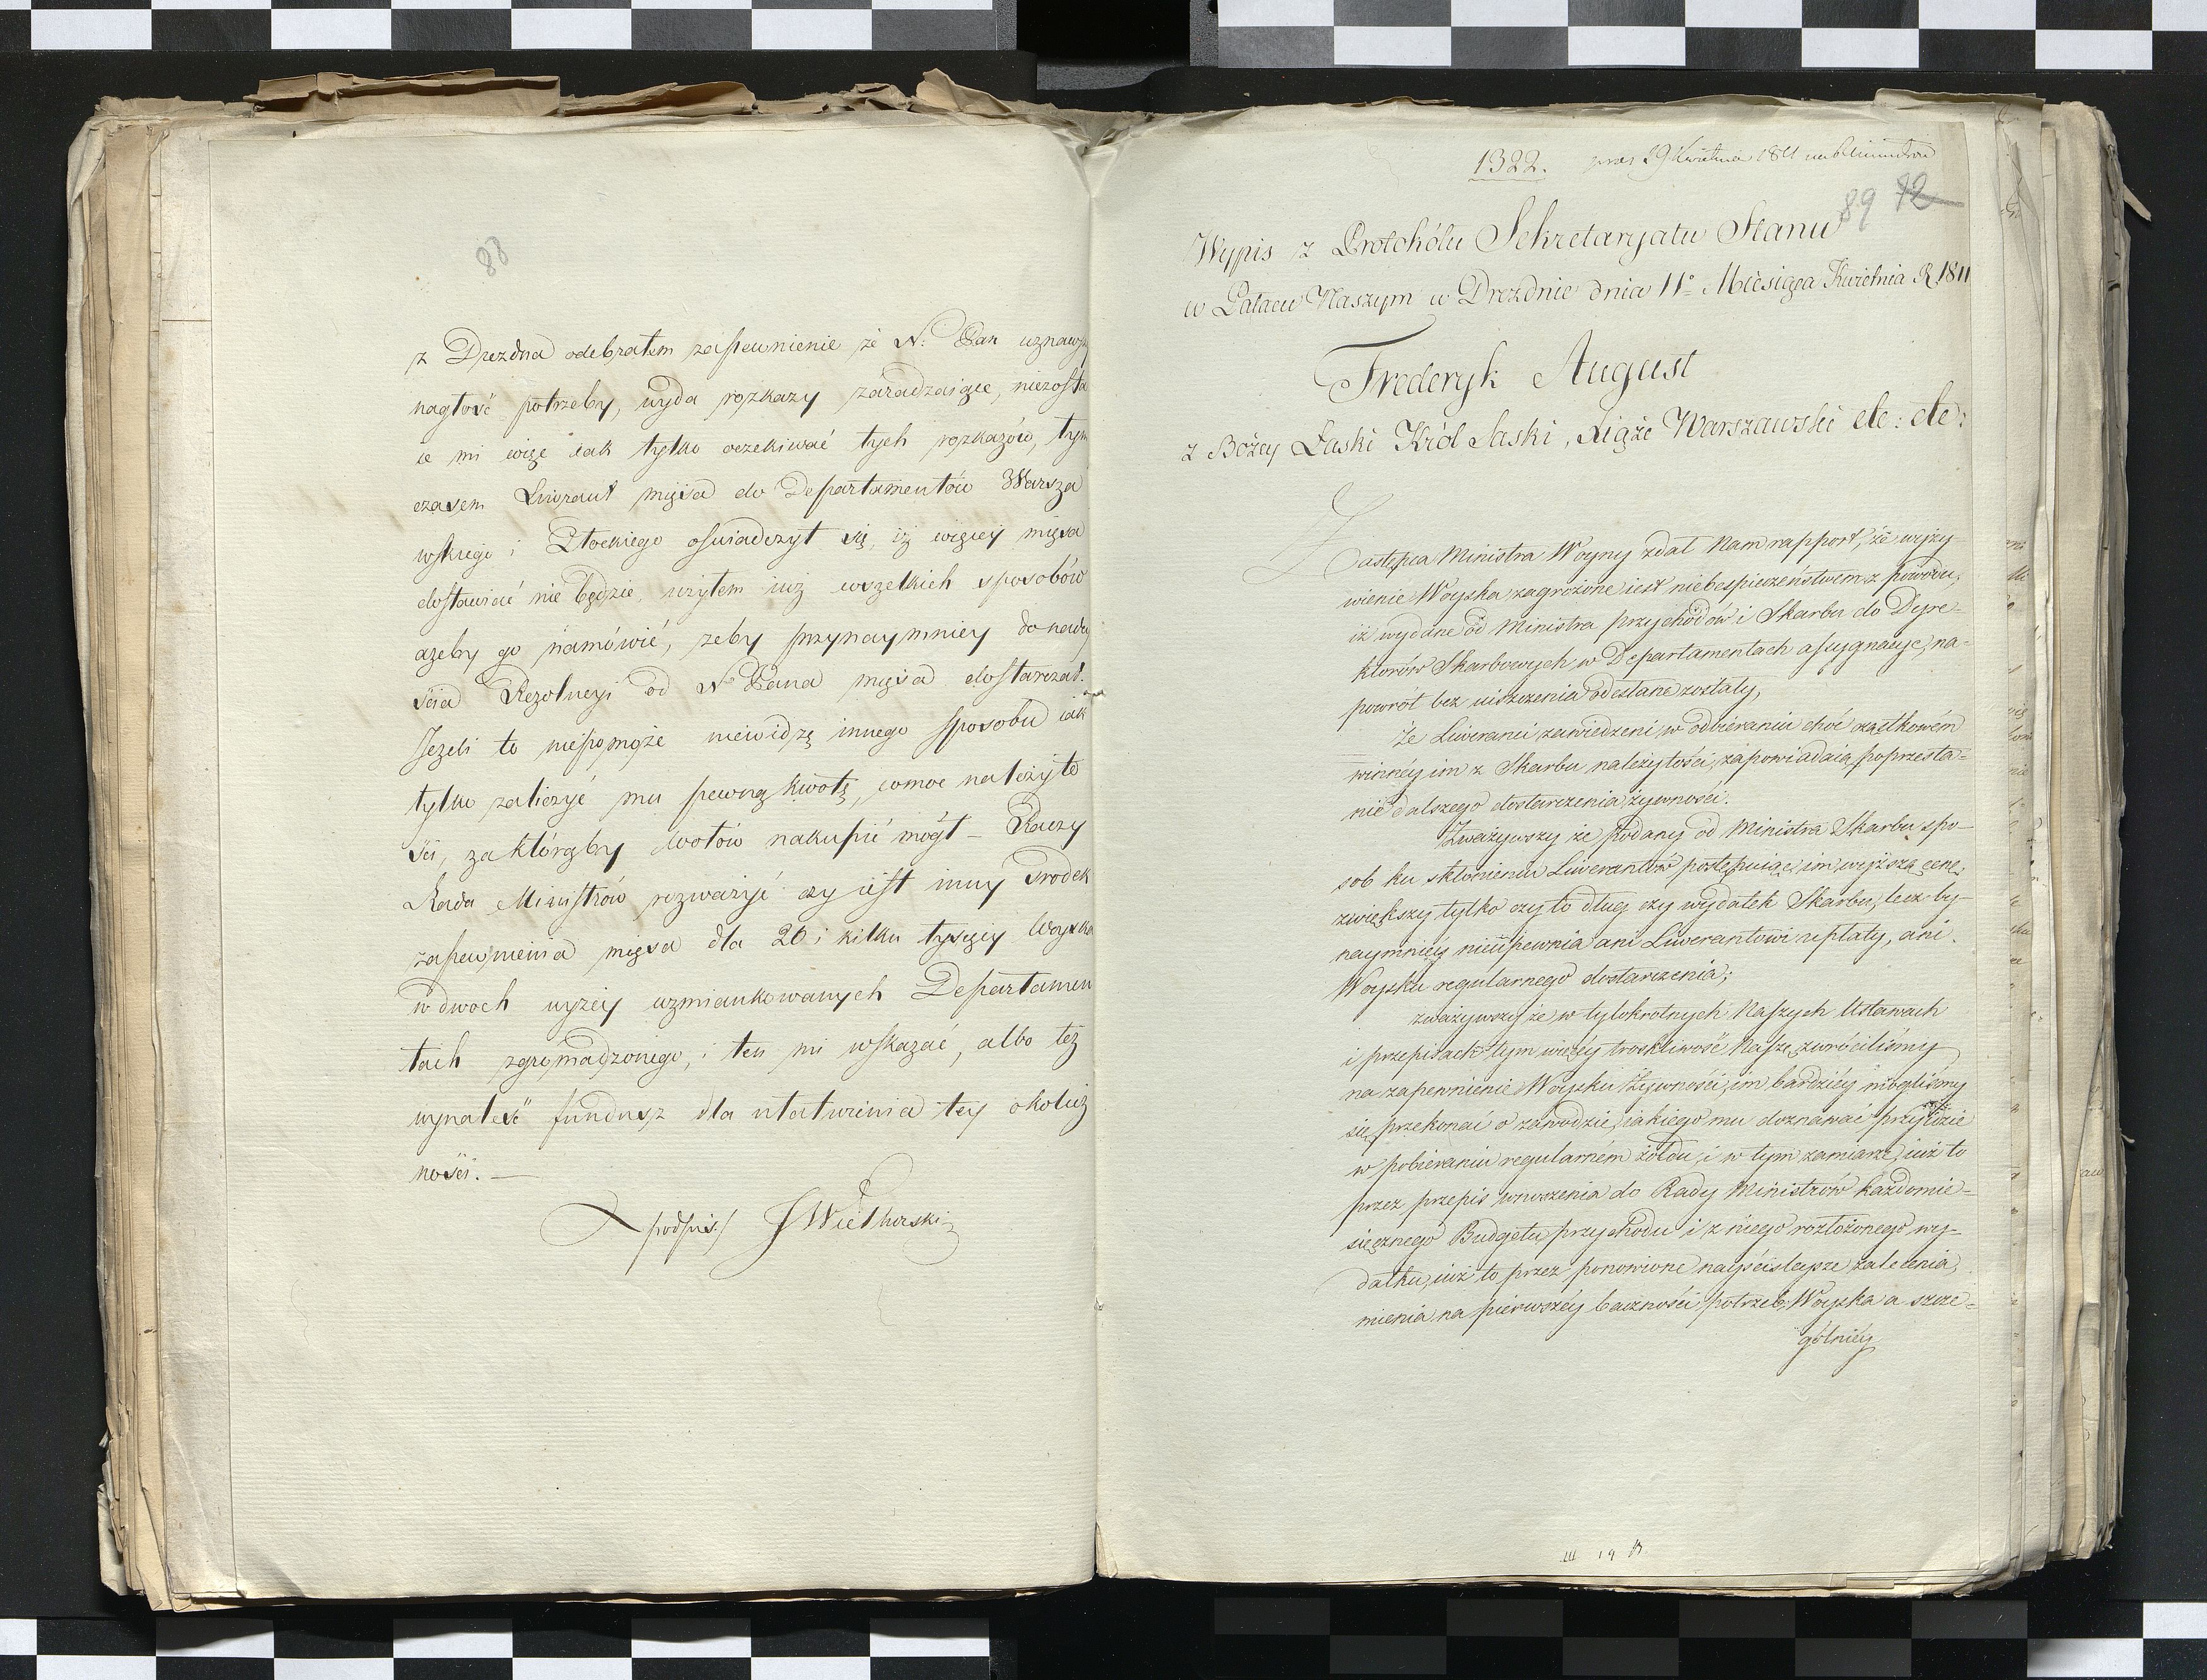 88
z Drezdna odebrałem zapewnienie że N. Pan uznawszy
nagłość potrzeby, wyda rozkazy zaradzaiące, niezosta
ie mi więc iak tylko oczekiwać tych rozkazów, tym
czasem Liwerant mięsa do Departamentów Warsza
wskiego i Płockiego oświadczył się, iż więcey mięsa
dostawiać nie będzie, użyłem iuż wszelkich sposobów
ażeby go namówić, żeby przynaymniey do nadey
ścia Rezolucyi od N. Pana mięsa dostarczał.
Jeżeli to niepomoże niewidzę innego sposobu iak
tylko zaliczyć mu pewną kwotę, comoc należyto
ści, za którąby wołów nakupić mógł – Raczy
Rada Ministrów rozważyć czy iest inny srodek
zapewnienia mięsa dla 20 i kilku tysięcy Woyska
w dwoch wyżey wzmiankowanych Departamen
tach zgromadzonego, i ten mi wskazać, albo też
wynaleść fundusz dla ułatwienia tey okolicz
ności. —
/podpis./ J Wielhorski
1322. prez 29 Kwietnia 1811
89 92
Wypis z Protokółu Sekretaryatu Stanu
w Pałacu Naszym w Dreźdnie dnia 11º Miesiąca Kwietnia R 1811
Frederyk August
z Bożey Łaski Król Saski, Xiąże Warszawski etc: etc:
Zastępca Ministra Woyny zdał Nam rapport, że wyży-
wienie Woyska zagrożone iest niebespieczeństwem z powodu,
iż wydane od Ministra przychodów i Skarbu do Dyre-
ktorów Skarbowych w Departamentach assygnacye, na-
powrót bez uiszczenia odesłane zostały,
że Liweranci zawiedzeni w odbieraniu choć cząstkowém
winnéy im z Skarbu należytości, zapowiadaią poprzesta-
nie dalszego dostarczenia żywności.
Zważywszy że podany od Ministra Skarbu spo-
sob ku skłonieniu Liwerantów postępuiąc im wyższą cenę,
zwiększy tylko czy to dług czy wydatek Skarbu, lecz by-
naymniéy nieupewnia ani Liwerantowi upłaty, ani
Woysku regularnego dostarczenia;
zważywszy że w tylokrotnych Naszych Ustawach
i przepisach tym więcéy troskliwość Naszę zwróciliśmy
na zapewnienie Woysku Żywności, im bardziéy mogliśmy
się przekonać o zawodzie, iakiego mu doznawać przyidzie
w pobieraniu regularném żołdu, i w tym zamiarze iuż to
przez przepis wnoszenia do Rady Ministrów każdomie-
sięcznego Budgetu przychodu i z niego rozłożonego wy-
datku, iuż to przez ponowione nayściśleysze zalecenia
mienia na pierwszéy baczności potrzeb Woyska a szcze-
gólniéy